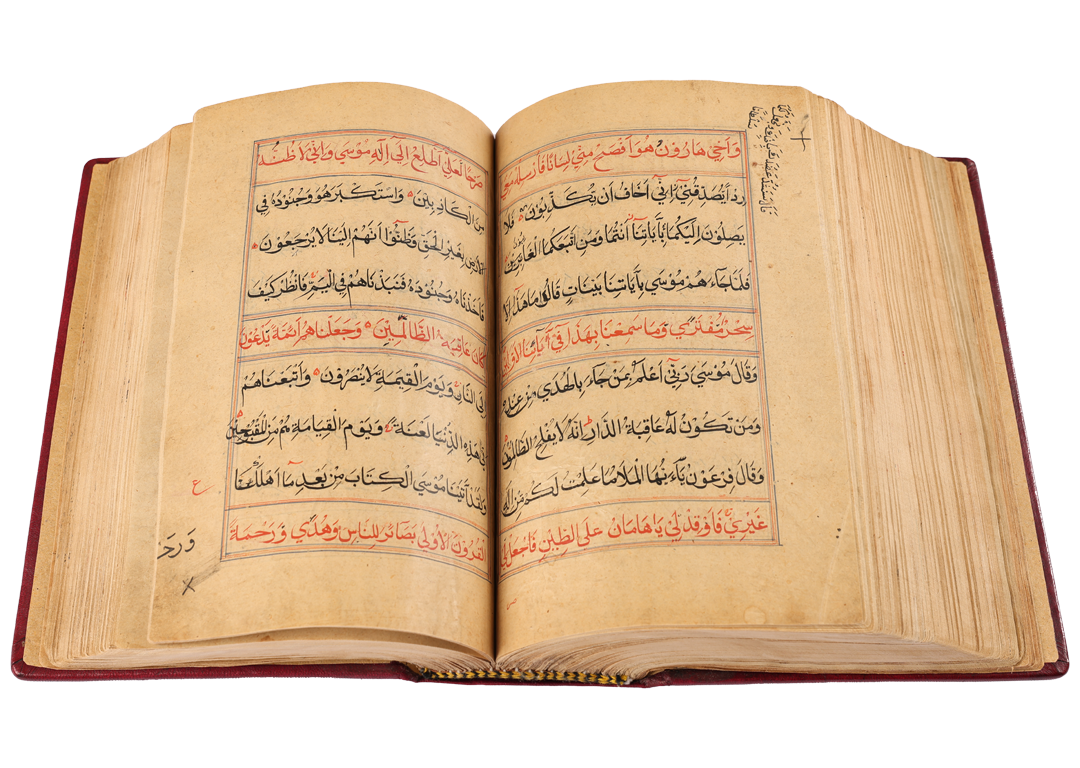 وَاَخِي هَارُونُ هُوَ اَفْصَحُ مِنِّي لِسَانًا فَاَرْسِلْهُ مَعِيَ
رِدْاً يُصَدِّقُنِي اِنِّي اَخَافُ اَنْ يُكَذِّبُونِ فَلَا
قَالَ سَنَشُدُّ عَضُدَكَ
يَصِلُونَ اِلَيْكُمَا بِآيَاتِنَا اَنْتُمَا وَمَنِ اتَّبَعَكُمَا الْغَالِبُونَ
فَلَمَّا جَآءَهُمْ مُوْسَي بِآيَاتِنَا بَيِّنَاتٍ قَالُوا مَا هَذَا اِلَّا
سِحْرٌ مُفْتَرَي وَمَا سَمِعْنَا بِهَذَا فِي آبَائِنَا الْاَوَّلِينَ
وَقَالَ مُوْسَي رَبِّي اَعْلَمُ بِمَنْ جَآءَ بِالْهُدَي مِنْ عِنْدِهِ
وَمَنْ تَكُوْنُ لَهُ عَاقِبَةُ الدَّارِ اِنَّهُ لَا يُفْلِحُ الظَّالِمُوْنَ
وَقَالَ فِرْعَوْنُ يَآءَيُّهَا الْمَلَا مَا عَلِمْتُ لَكُمْ مِنْ اِلَهٍ
غَيْرِي فَاَوْقِدْ لِي يَا هَامَانُ عَلَي الطِّيْنِ فَاجْعَلْ لِي
صَرْحًا لَعَلِّي اَطَّلِعُ اِلَي اِلَهِ مُوْسَي وَاِنِّي لَاَظُنُّهُ
مِنَ الْكَاذِبِيْنَ وَاسْتَكْبَرَ هُوَ وَجُنُوْدُهُ فِي
الْاَرْضِ بِغَيْرِ الْحَقِّ وَظَنُّوْا اَنَّهُمْ اِلَيْنَا لَا يُرْجَعُوْنَ
فَاَخَذْنَاهُ وَجُنُوْدَهُ فَنَبَذْنَاهُمْ فِي الْيَمِّ فَانْظُرْ كَيْفَ
كَانَ عَاقِبَةُ الظَّالِمِيْنَ وَجَعَلْنَاهُمْ اَئِمَّةً يَدْعُوْنَ
اِلَي النَّارِ وَيَوْمَ الْقِيٰمَةِ لَا يُنْصَرُوْنَ وَاَتْبَعْنَاهُمْ
فِي هَذِهِ الدُّنْيَا لَعْنَةً وَيَوْمَ الْقِيَامَةِ هُمْ مِنَ الْمَقْبُوحِيْنَ
وَلَقَدْ آتَيْنَا مُوْسَي الْكِتَابَ مِنْ بَعْدِ مَا اَهْلَكْنَا
الْقُرُوْنَ الْاُوْلَي بَصَائِرَ لِلنَّاسِ وَهُدًي وَرَحْمَةً
ع
وَرَحْـ